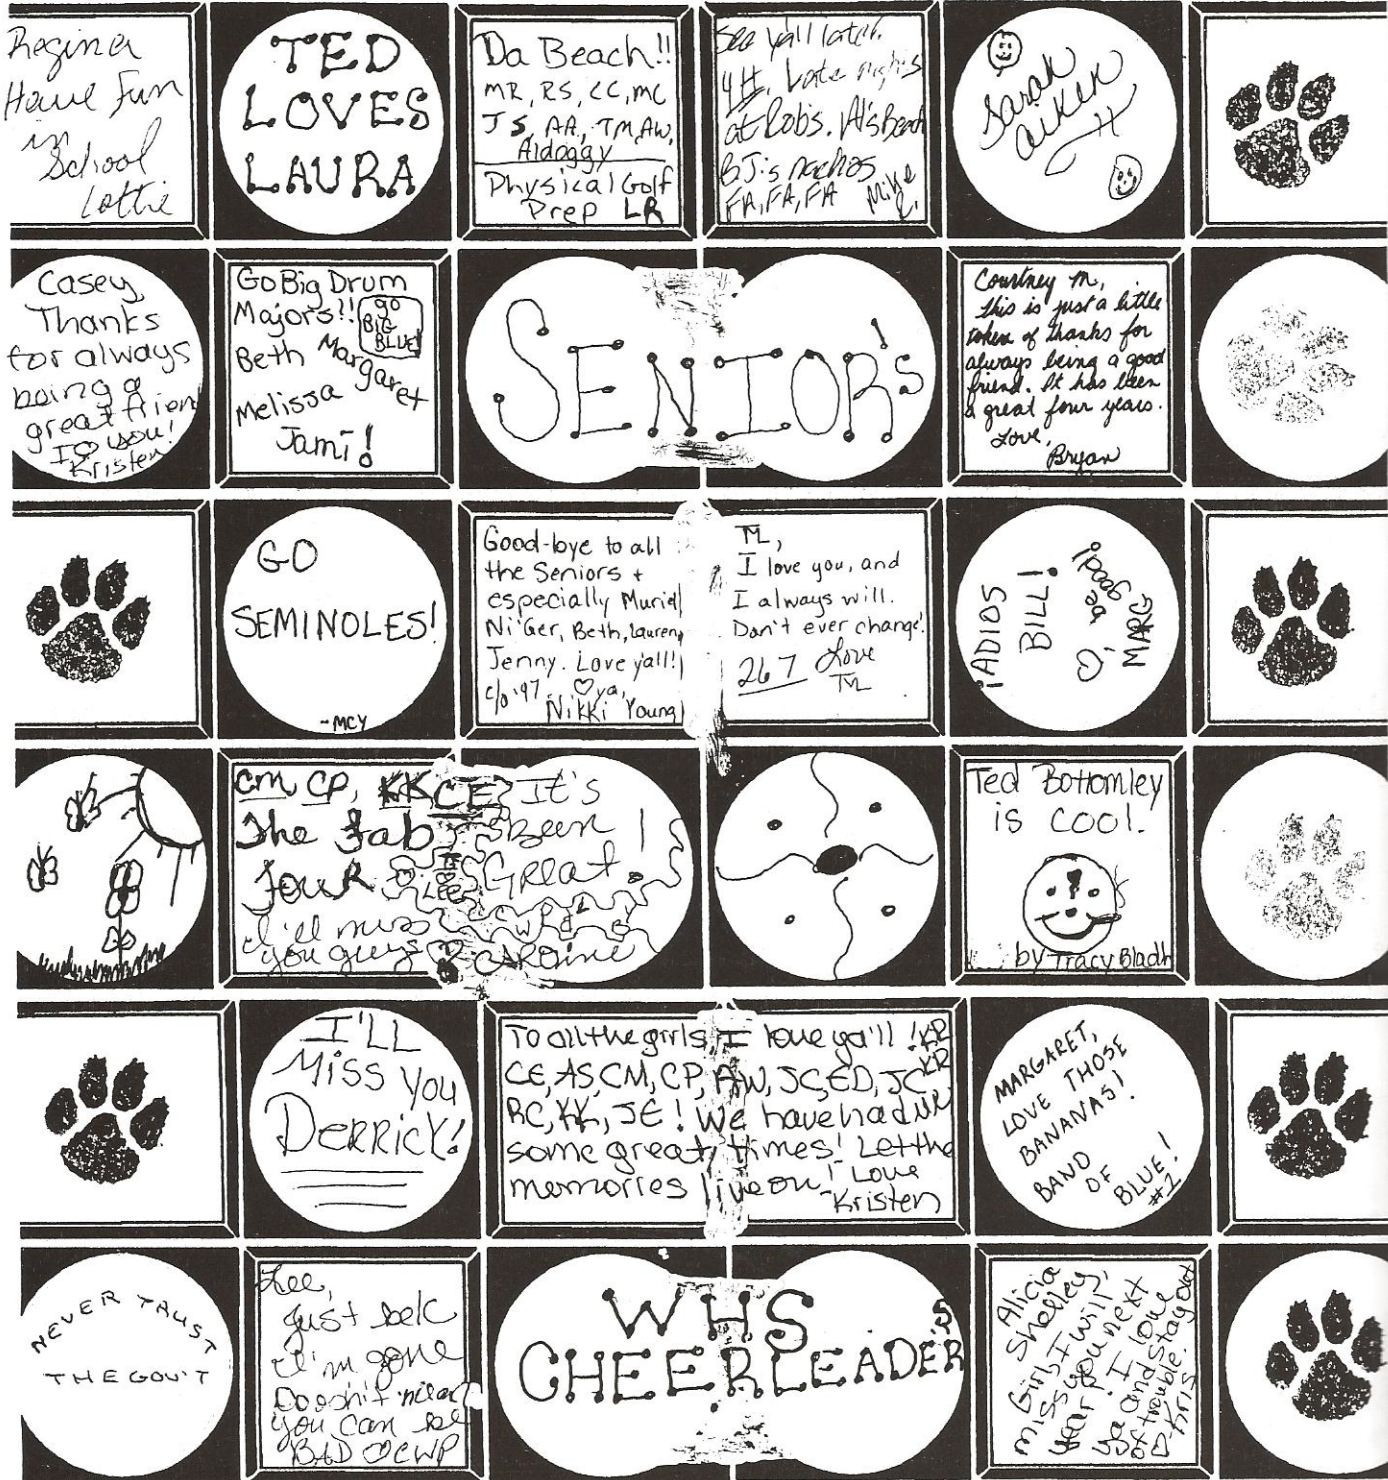 Regina
Have Fun
in
School
Lottie
TED
LOVES
LAURA
Da Beach!!
MR, RS, CC, MC
JS, AA, TM, AW,
Aldoggy
Physical Golf
Prep LR
See ya'll later.
4H, Late nights
at Rob's. Al's Beach
BJ's nachos
FA, FA, FA Mike
Sarah
Aiken
Casey,
Thanks
for always
being a
great frien
I ♡ you!
Kristen
Go Big Drum
Majors!! go
BIG
BLUE!
Beth Margaret
Melissa
Jami!
SENIOR's
Courtney M,
this is just a little
token of thanks for
always being a good
friend. It has been
a great four years.
Love,
Bryan
GO
SEMINOLES!
-MCY
Good-bye to all
the Seniors +
especially
Ni'Ger, Beth, Lauren,
Jenny. Love y'all!
c/o '97. ♡ ya,
Nikki Young
TL,
I love you, and
I always will.
Don't ever change!
267 Love
TL
¡ADIOS
BILL!
be good!
♡, MARG
CM CP, KK CE It's
The Fab Been
Four Great!
LEE
I'll miss
you guys ♡ Caroline
Ted Bottomley
is cool!
by Tracy Bladh
I'LL
Miss you
Derrick!
To all the girls, I love ya'll! KR
CE, AS, CM, CP, AW, JC, ED, JC, KR
RC, KK, JE! We have had
some great times! Let the
memories live on! Love
-Kristen
MARGARET,
LOVE THOSE
BANANAS!
BAND
OF
BLUE!
#1
NEVER TRUST
THE GOV'T
Lee,
Just bek
I'm gone
Doesn't mean
you can be
BAD ♡ CWP
WHS
CHEERLEADER'S
Alicia
Shelley,
Girls, I will
miss you next
year! I love
ya and stay out
of trouble.
♡ Kris